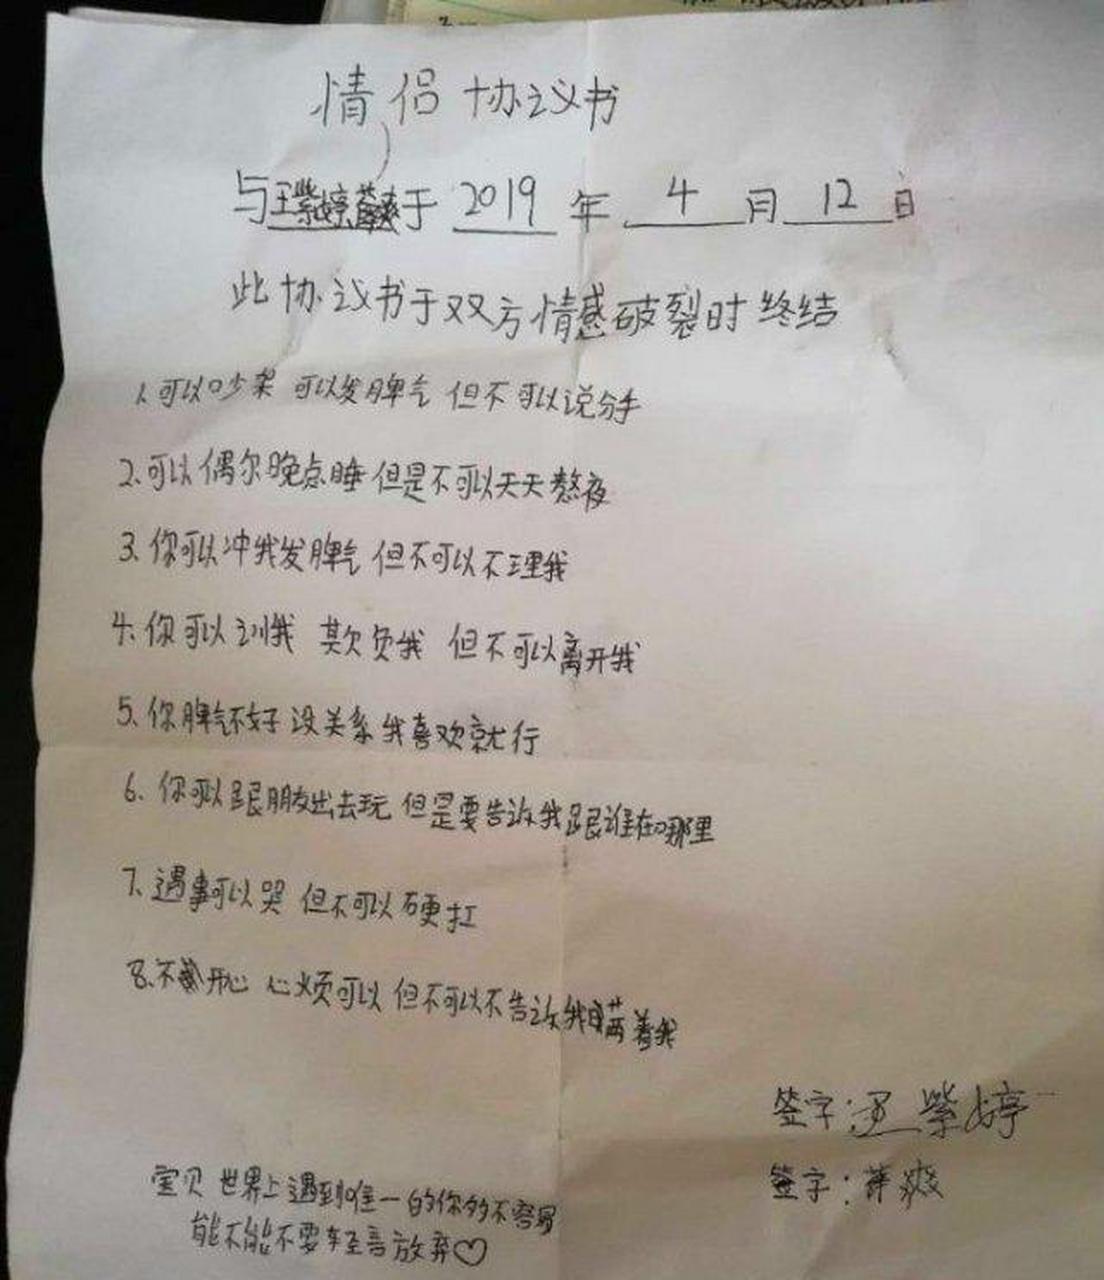 情侣协议书
与王紫婷 于 2019 年 4 月 12 日
此协议书于双方情感破裂时终结
1.可以吵架 可以发脾气 但不可以说分手
2.可以偶尔晚点睡但是不可以天天熬夜
3.你可以冲我发脾气 但不可以不理我
4.你可以训我 欺负我 但不可以离开我
5.你脾气不好 没关系 我喜欢就行
6.你可以跟朋友出去玩 但是要告诉我跟谁在哪里
7.遇事可以哭 但不可以硬扛
8.不开心 心烦可以 但不可以不告诉我瞒着我
签字:王紫婷
签字:薛爽
宝贝 世界上遇到唯一的你多不容易
能不能不要轻言放弃♡